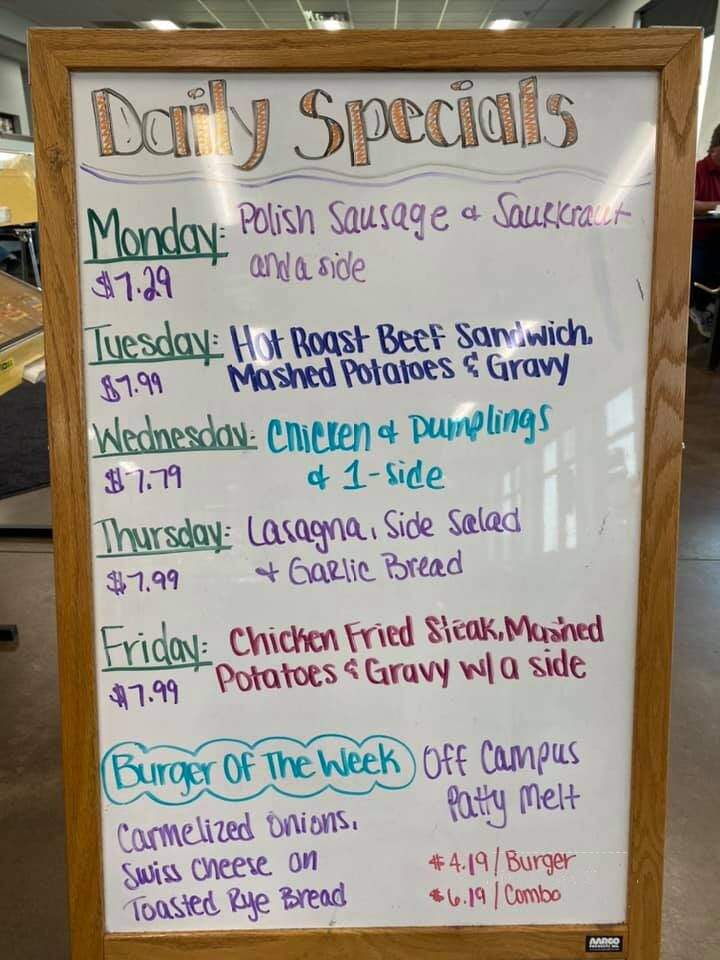 Daily Specials
Monday: Polish Sausage & Saurkraut
$7.29 and a side
Tuesday: Hot Roast Beef Sandwich,
$7.99 Mashed Potatoes & Gravy
Wednesday: Chicken & Dumplings
$7.79 & 1-Side
Thursday: Lasagna, Side Salad
$7.99 + Garlic Bread
Friday: Chicken Fried Steak, Mashed
$7.99 Potatoes & Gravy w/ a side
Burger Of The Week Off Campus
Patty Melt
Carmelized Onions,
Swiss Cheese on
Toasted Rye Bread
$4.19/Burger
$6.19/Combo
AARCO